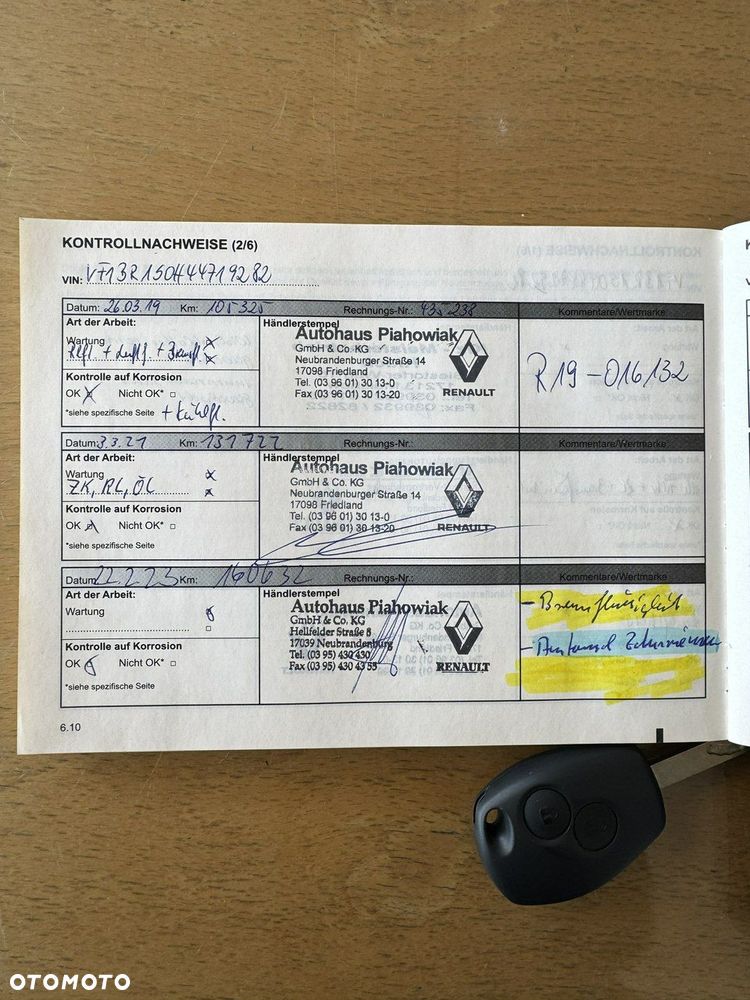 KONTROLLNACHWEISE (2/6)
VIN: VF13R150H44719282
Datum: 26.03.19 Km: 105325 Rechnungs-Nr.: 435238 Kommentare/Wertmarke
Art der Arbeit:
Wartung x
+ + x
Kontrolle auf Korrosion
OK x Nicht OK* □
*siehe spezifische Seite
Händlerstempel
Autohaus Piahowiak
GmbH & Co. KG
Neubrandenburger Straße 14
17098 Friedland
Tel. (03 96 01) 30 13-0
Fax (03 96 01) 30 13-20
RENAULT
R19-016132
Datum: 3.3.21 Km: 131722 Rechnungs-Nr.: Kommentare/Wertmarke
Art der Arbeit:
Wartung x
ZK, RL, ÖL x
Kontrolle auf Korrosion
OK x Nicht OK* □
*siehe spezifische Seite
Händlerstempel
Autohaus Piahowiak
GmbH & Co. KG
Neubrandenburger Straße 14
17098 Friedland
Tel. (03 96 01) 30 13-0
Fax (03 96 01) 30 13-20
RENAULT
Datum 22.2.23 Km: 160632 Rechnungs-Nr.: Kommentare/Wertmarke
Art der Arbeit:
Wartung
□
Kontrolle auf Korrosion
OK Nicht OK* □
*siehe spezifische Seite
Händlerstempel
Autohaus Piahowiak
GmbH & Co. KG
Hellfelder Straße 5
17039 Neubrandenburg
Tel. (03 95) 430 430
Fax (03 95) 430 43 55
RENAULT
- Bremsflüssigkeit
6.10
OTOMOTO